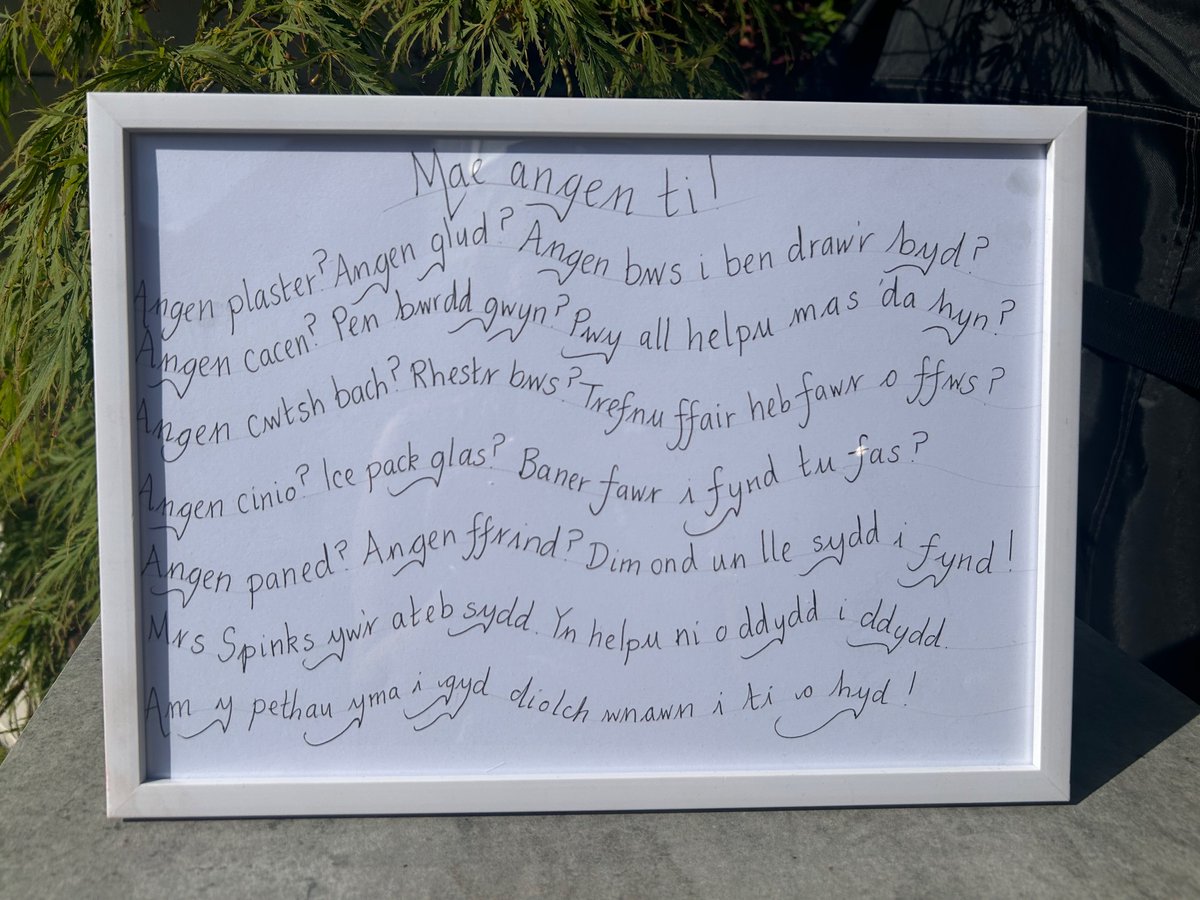 Mae angen ti!
Angen plaster? Angen glud? Angen bws i ben draw'r byd?
Angen cacen? Pen bwrdd gwyn? Pwy all helpu mas 'da hyn?
Angen cwtsh bach? Rhestr bws? Trefnu ffair heb fawr o ffws?
Angen cinio? Ice pack glas? Baner fawr i fynd tu fas?
Angen paned? Angen ffrind? Dim ond un lle sydd i fynd!
Mrs Spinks yw'r ateb sydd. Yn helpu ni o ddydd i ddydd.
Am y pethau yma i gyd diolch wnawn i ti o hyd!